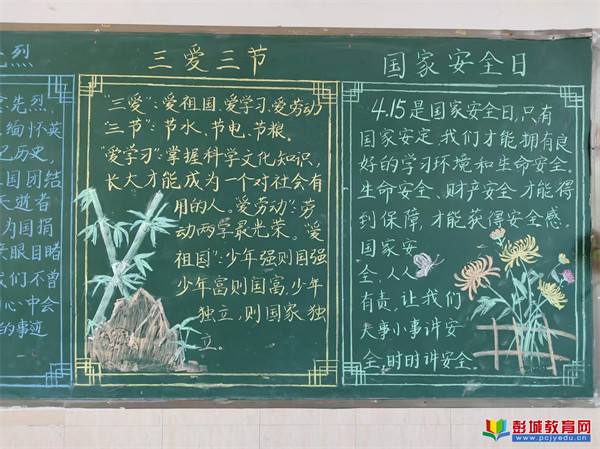 烈
先烈,
缅怀英
历史,
国团结
逝者
为国捐
眼目睹
们不曾
心中会
的事迹
三爱三节
“三爱”:爱祖国、爱学习、爱劳动
“三节”:节水、节电、节粮。
“爱学习”:掌握科学文化知识,
长大才能成为一个对社会有
用的人。“爱劳动”:劳
动两学最光荣。“爱
祖国”:少年强则国强
少年富则国富,少年
独立,则国家独
立。
国家安全日
4.15是国家安全日,只有
国家安定,我们才能拥有良
好的学习环境和生命安全。
生命安全、财产安全才能得
到保障,才能获得安全感,
国家安
全,人人
有责,让我们
大事小事讲安
全,时时讲安全.
彭城教育网
www.pcjyedu.cn